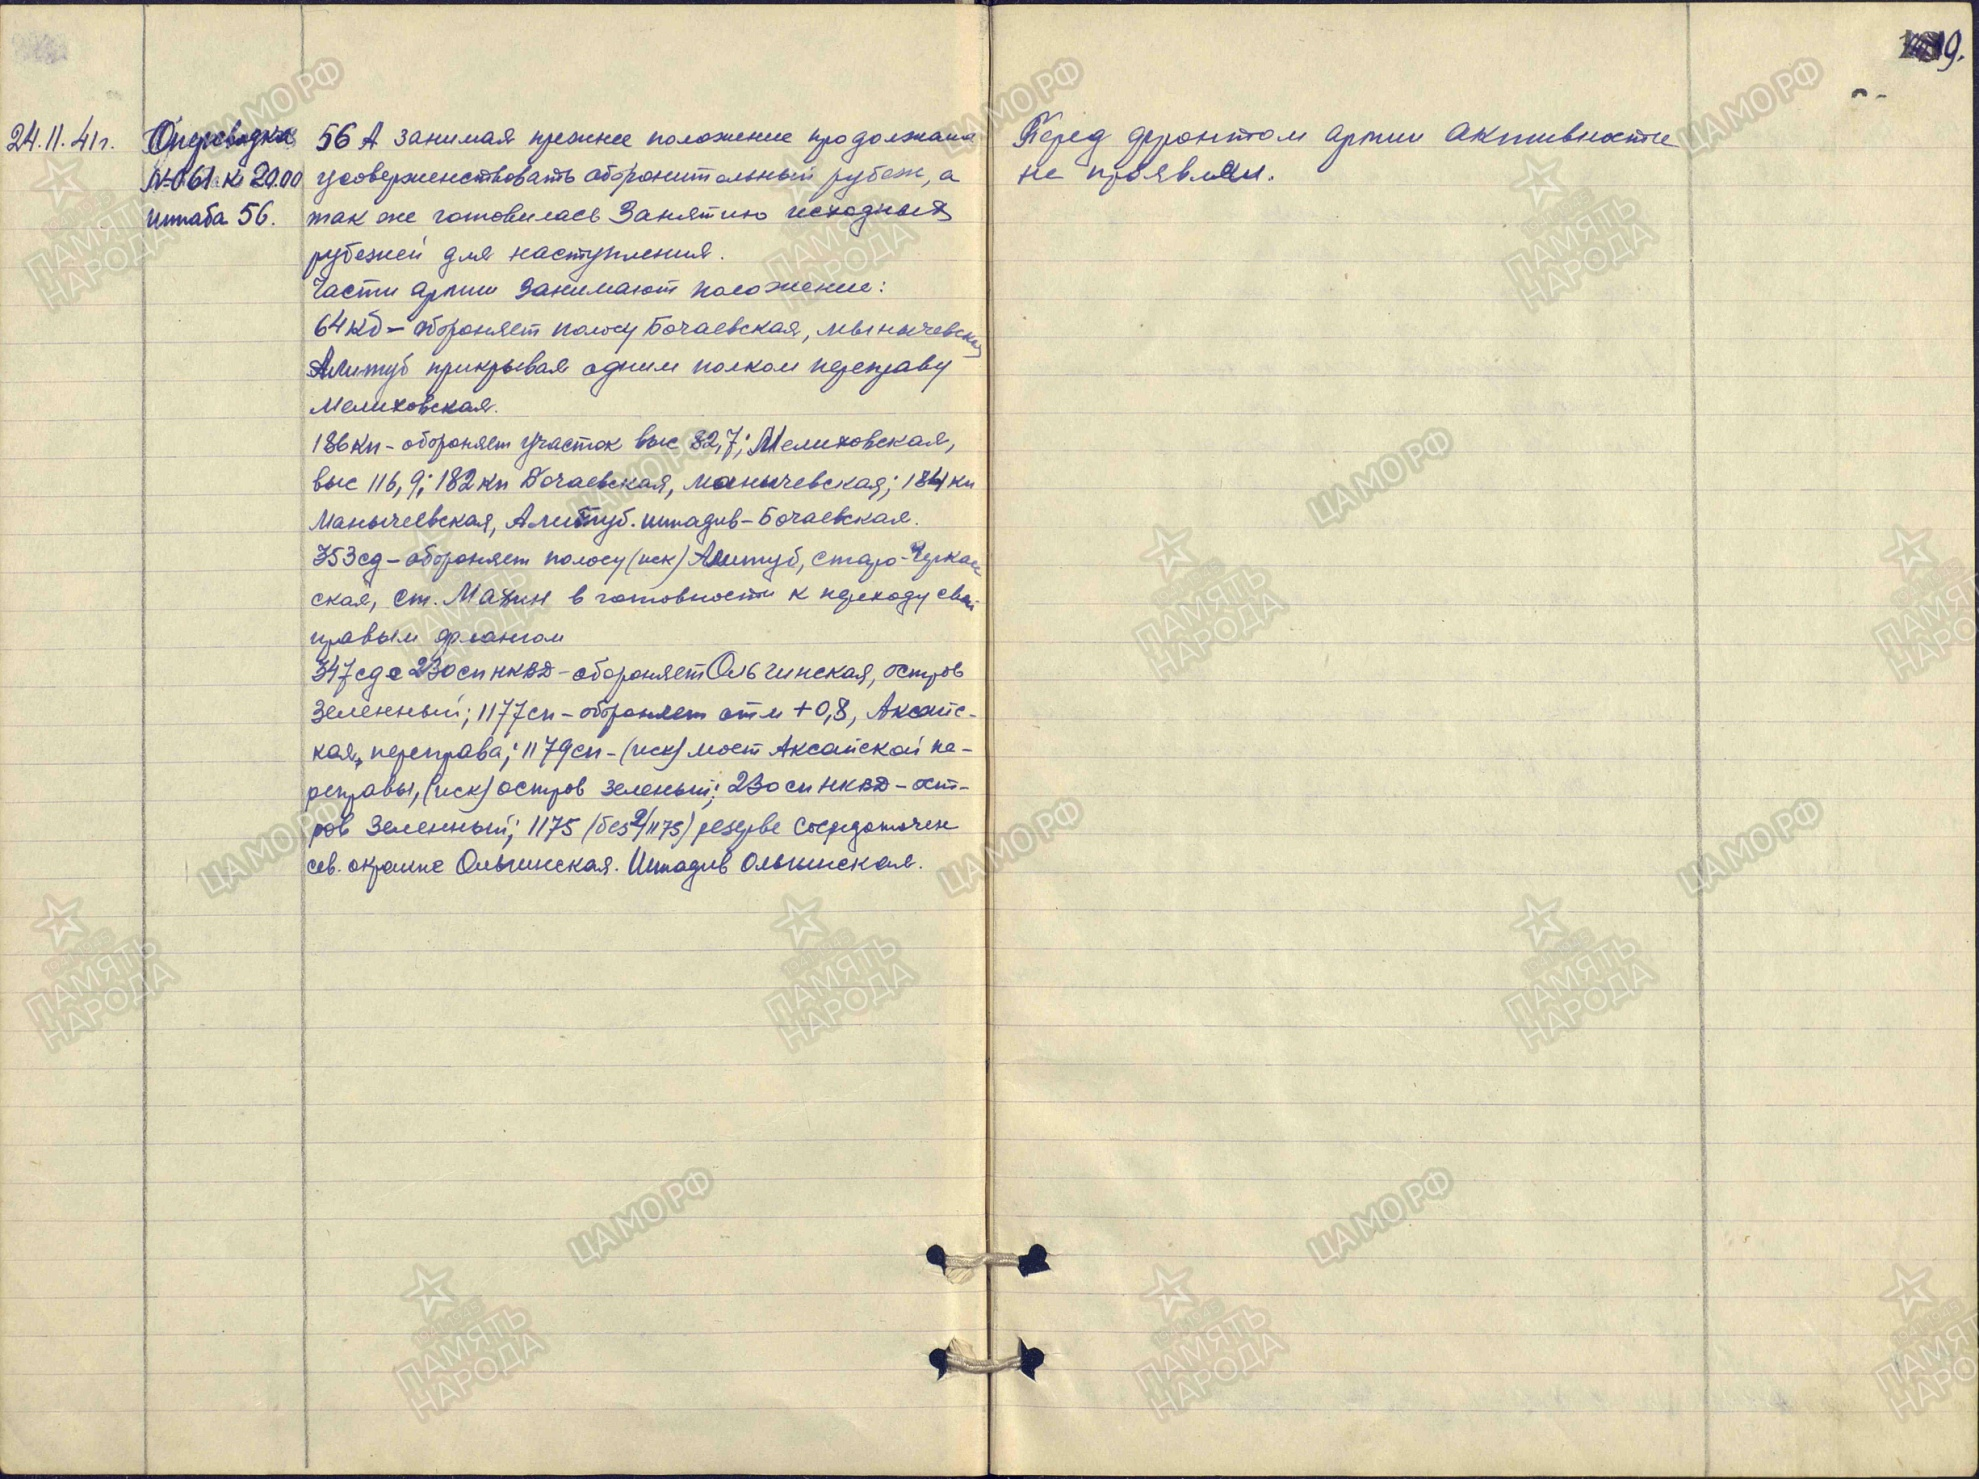 19.
24.11.41г.
Оперсводка
№061 к 20.00
штаба 56.
56 А занимая прежнее положение продолжала
усовершенствовать оборонительный рубеж, а
так же готовилась занятию исходных
рубежей для наступления.
Части армии занимают положение:
64кд – обороняет полосу Бочаевская, Манычевская
Алитуб прикрывая одним полком переправу
Мелиховская.
186кп – обороняет участок выс 82,7; Мелиховская,
выс 116,9; 182кп Бочаевская, Манычевская; 184кп
Манычевская, Алитуб. штадив – Бочаевская.
353сд – обороняет полосу (иск) Алитуб, Старо-Черкас
ская, ст. Махин в готовности к переходу свои
правым флангом
347сд с 230сп НКВД – обороняет Ольгинская, остров
Зеленный; 1177сп – обороняет отм +0,8, Аксайс-
кая, переправа; 1179сп – (иск) мост Аксайской пе-
реправы, (иск) остров Зеленый; 230сп НКВД – ост-
ров Зеленный; 1175 (без 2/1175) резерве сосредоточен
сев. окраине Ольгинская. Штадив Ольгинская.
Перед фронтом армии активности
не проявлял.
ЦАМО РФ
ПАМЯТЬ
НАРОДА